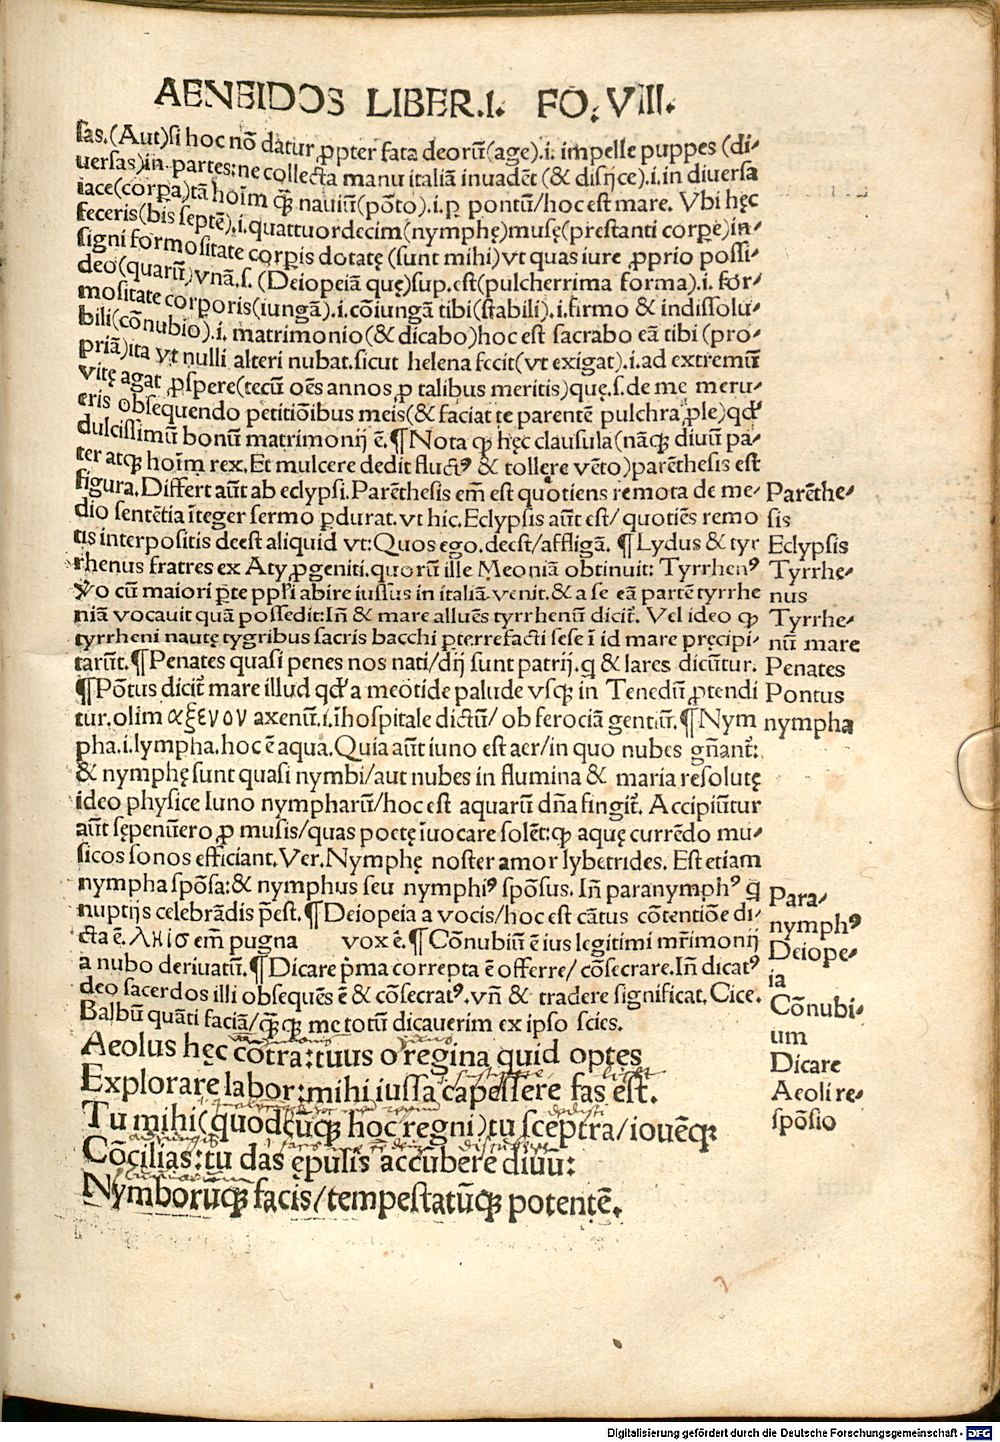 AENEIDOS LIBER.I. FO. VIII.
ſas.(Aut)ſi hoc nõ datur ꝓpter fata deorũ(age).i. impelle puppes (di⸗
uerſas)in partes:ne collecta manu italiã inuadẽt (& diſijce).i.in diuerſa
iace(corꝑa)tã hoĩm qƺ nauiũ(põto).i.ꝑ pontũ/hoc eſt mare. Vbi hęc
feceris(bis ſeptẽ).i.quattuordecim(nymphę)muſę(preſtanti corꝑe)in⸗
ſigni formoſitate corꝑis dotatę (ſunt mihi)vt quas iure ꝓprio poſſi⸗
deo(quarũ)vnã.ſ. (Deiopeiã quę)sup.eſt(pulcherrima forma).i. for⸗
moſitate corporis(iungã).i.cõiungã tibi(ſtabili).i.firmo & indiſſolu⸗
bili(cõnubio).i. matrimonio(& dicabo)hoc eſt sacrabo eã tibi (pro⸗
priã)ita vt nulli alteri nubat.ſicut helena fecit(vt exigat).i.ad extremũ
vitę agat ꝓſpere(tecũ oẽs annos ꝓ talibus meritis)quę.ſ.de me meru⸗
eris obſequendo petitiõibus meis(& faciat te parentẽ pulchra ꝓle)qd'
dulciſſimũ bonũ matrimonij ẽ.¶Nota qƺ hęc clauſula(nãqƺ diuũ pa⸗
ter atqƺ hoĩm rex.Et mulcere dedit fluctꝰ & tollere vẽto)parẽtheſis eſt
figura.Differt aũt ab eclypſi.Parẽtheſis em̃ eſt quotiens remota de me⸗
dio ſentẽtia ĩteger ſermo ꝑdurat.vt hic.Eclypſis aũt eſt/ quotiẽs remo
tis interpoſitis deeſt aliquid vt:Quos ego.deeſt/affligã. ¶Lydus & tyr
rhenus fratres ex Aty ꝓgeniti.quorũ ille Meoniã obtinuit: Tyrrhenꝰ
vo cũ maiori ꝑte ppl'i abire iuſſus in italiã venit.& a ſe eã partẽ tyrrhe
niã vocauit quã poſſedit:Iñ & mare alluẽs tyrrhenũ dicit̃. Vel ideo qƺ
tyrrheni nautę tygribus ſacris bacchi ꝑterrefacti ſeſe ĩ id mare pręcipi⸗
tarũt.¶Penates quaſi penes nos nati/dij ſunt patrij.q & lares dicũtur.
¶Põtus dicit̃ mare illud qd' a meotide palude vſqƺ in Tenedũ ꝓtendi
tur.olim αξενον axenũ.i.ĩhoſpitale dictũ/ ob ferociã gentiũ.¶Nym
pha.i.lympha.hoc ẽ aqua.Quia aũt iuno eſt aer/in quo nubes gñant̃:
& nymphę ſunt quaſi nymbi/aut nubes in flumina & maria reſolutę
ideo phyſice Iuno nympharũ/hoc eſt aquarũ dña fingit̃. Accipiũtur
aũt ſępenũero ꝓ muſis/quas poetę ĩuocare ſolẽt:qƺ aquę currẽdo mu⸗
ſicos ſonos efficiant.Ver.Nymphę noſter amor lybetrides. Eſt etiam
nympha ſpõſa:& nymphus ſeu nymphiꝰ ſpõſus. Iñ paranymphꝰ q
nuptijs celebrãdis p̃eſt.¶Deiopeia a vocis/hoc eſt cãtus cõtentiõe di⸗
cta ẽ.ληισ em̃ pugna vox ẽ.¶Cõnubiũ ẽ ius legitimi mr̃imonij
a nubo deriuatũ.¶Dicare p̃ma correpta ẽ offerre/ cõſecrare.Iñ dicatꝰ
deo ſacerdos illi obſequẽs ẽ & cõſecratꝰ.vñ & tradere ſignificat.Cice.
Balbũ quãti faciã/qƺqƺ me totũ dicauerim ex ipſo ſcies.
Aeolus hęc cõtra:tuus o regina quid optes
Explorare labor:mihi iuſſa capeſſere fas eſt.
Tu mihi(quodcũqƺ hoc regni)tu ſceptra/iouẽqƺ
Cõcilias:tu das ępulis accũbere diuũ:
Nymborũqƺ facis/tempeſtatũqƺ potentẽ.
Parẽthe⸗
ſis
Eclypſis
Tyrrhe⸗
nus
Tyrrhe⸗
nũ mare
Penates
Pontus
nympha
Para⸗
nymphꝰ
Deiope⸗
ia
Cõnubi⸗
um
Dicare
Aeoli re⸗
ſpõſio
Digitalisierung gefördert durch die Deutsche Forschungsgemeinschaft - DFG